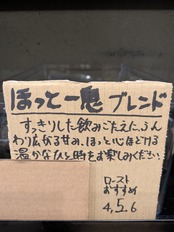 ほっと一息 ブレンド
すっきりした飲みごたえに、ふん
わり広がる甘み。ほっと心ほどける
温かなひと時をお楽しみください。
ロースト
おすすめ
4,5,6